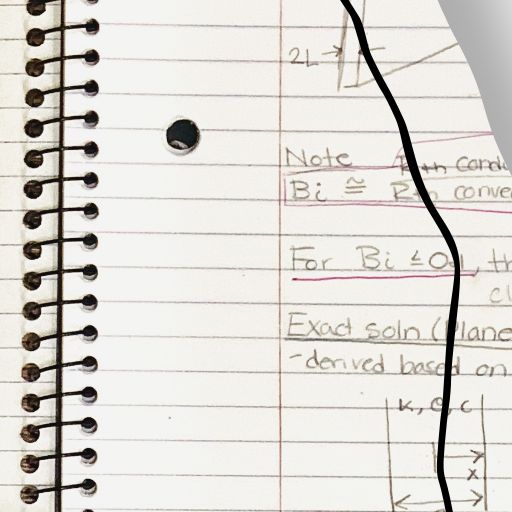 2L
Note Rth cond
Bi ≅ Rth conve
For Bi ≤ 0.1, th
cl
Exact soln (Plane
-derived based on
K, ρ, c
x